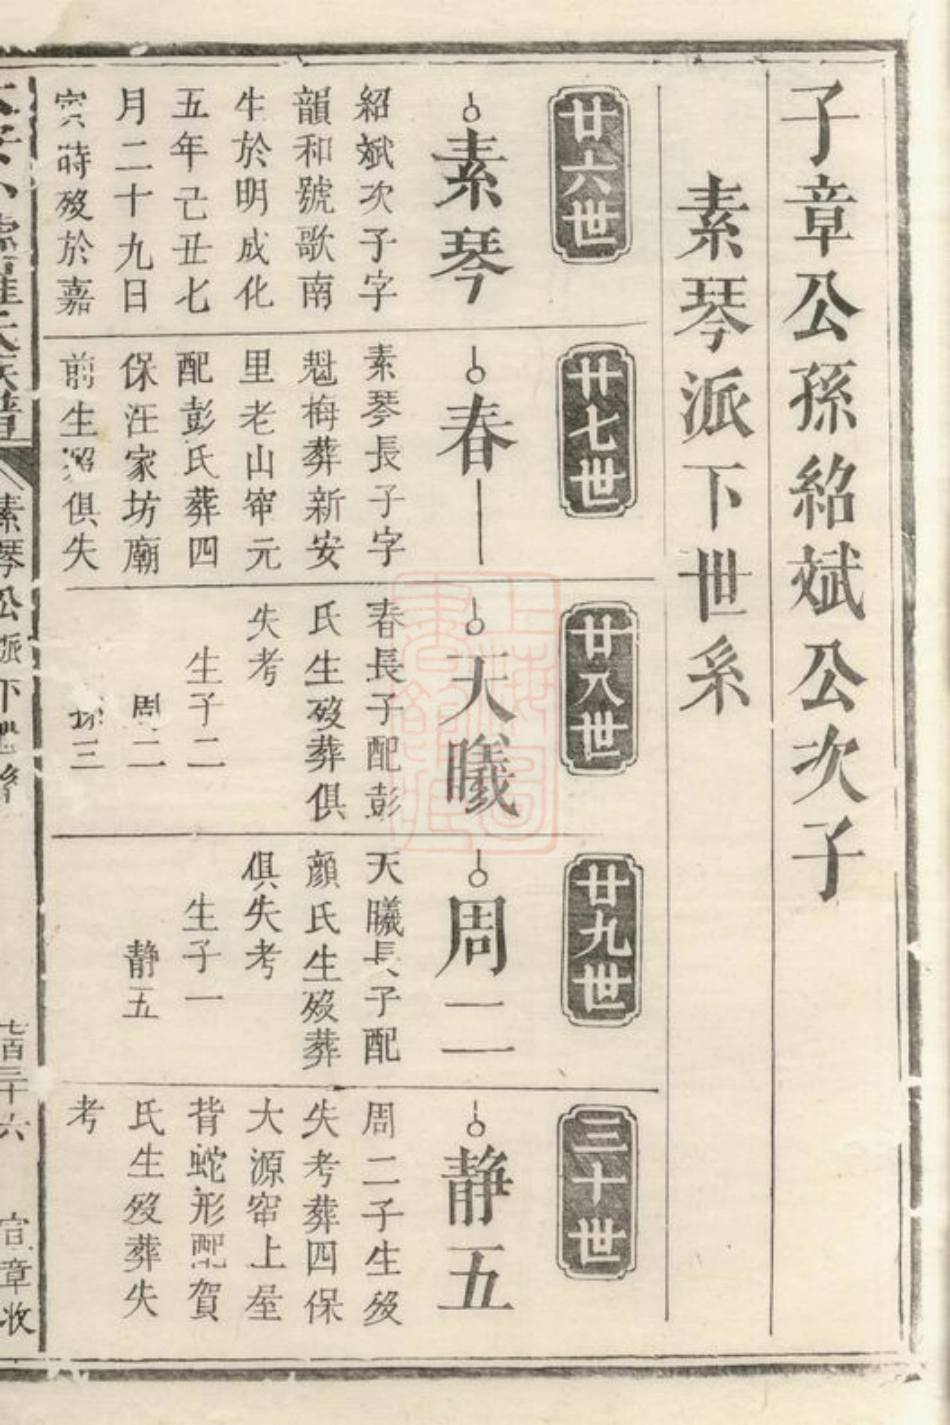 子章公孫紹斌公次子
素琴派下世系
廿六世
素琴
紹斌次子字
韻和號歌南
生於明成化
五年己丑七
月二十九日
寅時歿於嘉
廿七世
春一
素琴長子字
魁梅葬新安
里老山窂元
配彭氏葬四
保汪家坊廟
前生歿俱失
廿八世
天曦
春長子配彭
氏生歿葬俱
失考
生子二
周二
三
廿九世
周二
天曦長子配
顏氏生歿葬
俱失考
生子一
静五
三十世
静五
周二子生歿
失考葬四保
大源窂上屋
背蛇形配賀
氏生歿葬失
考
氏族譜
素琴公派下世系
七百三十六
宣章收